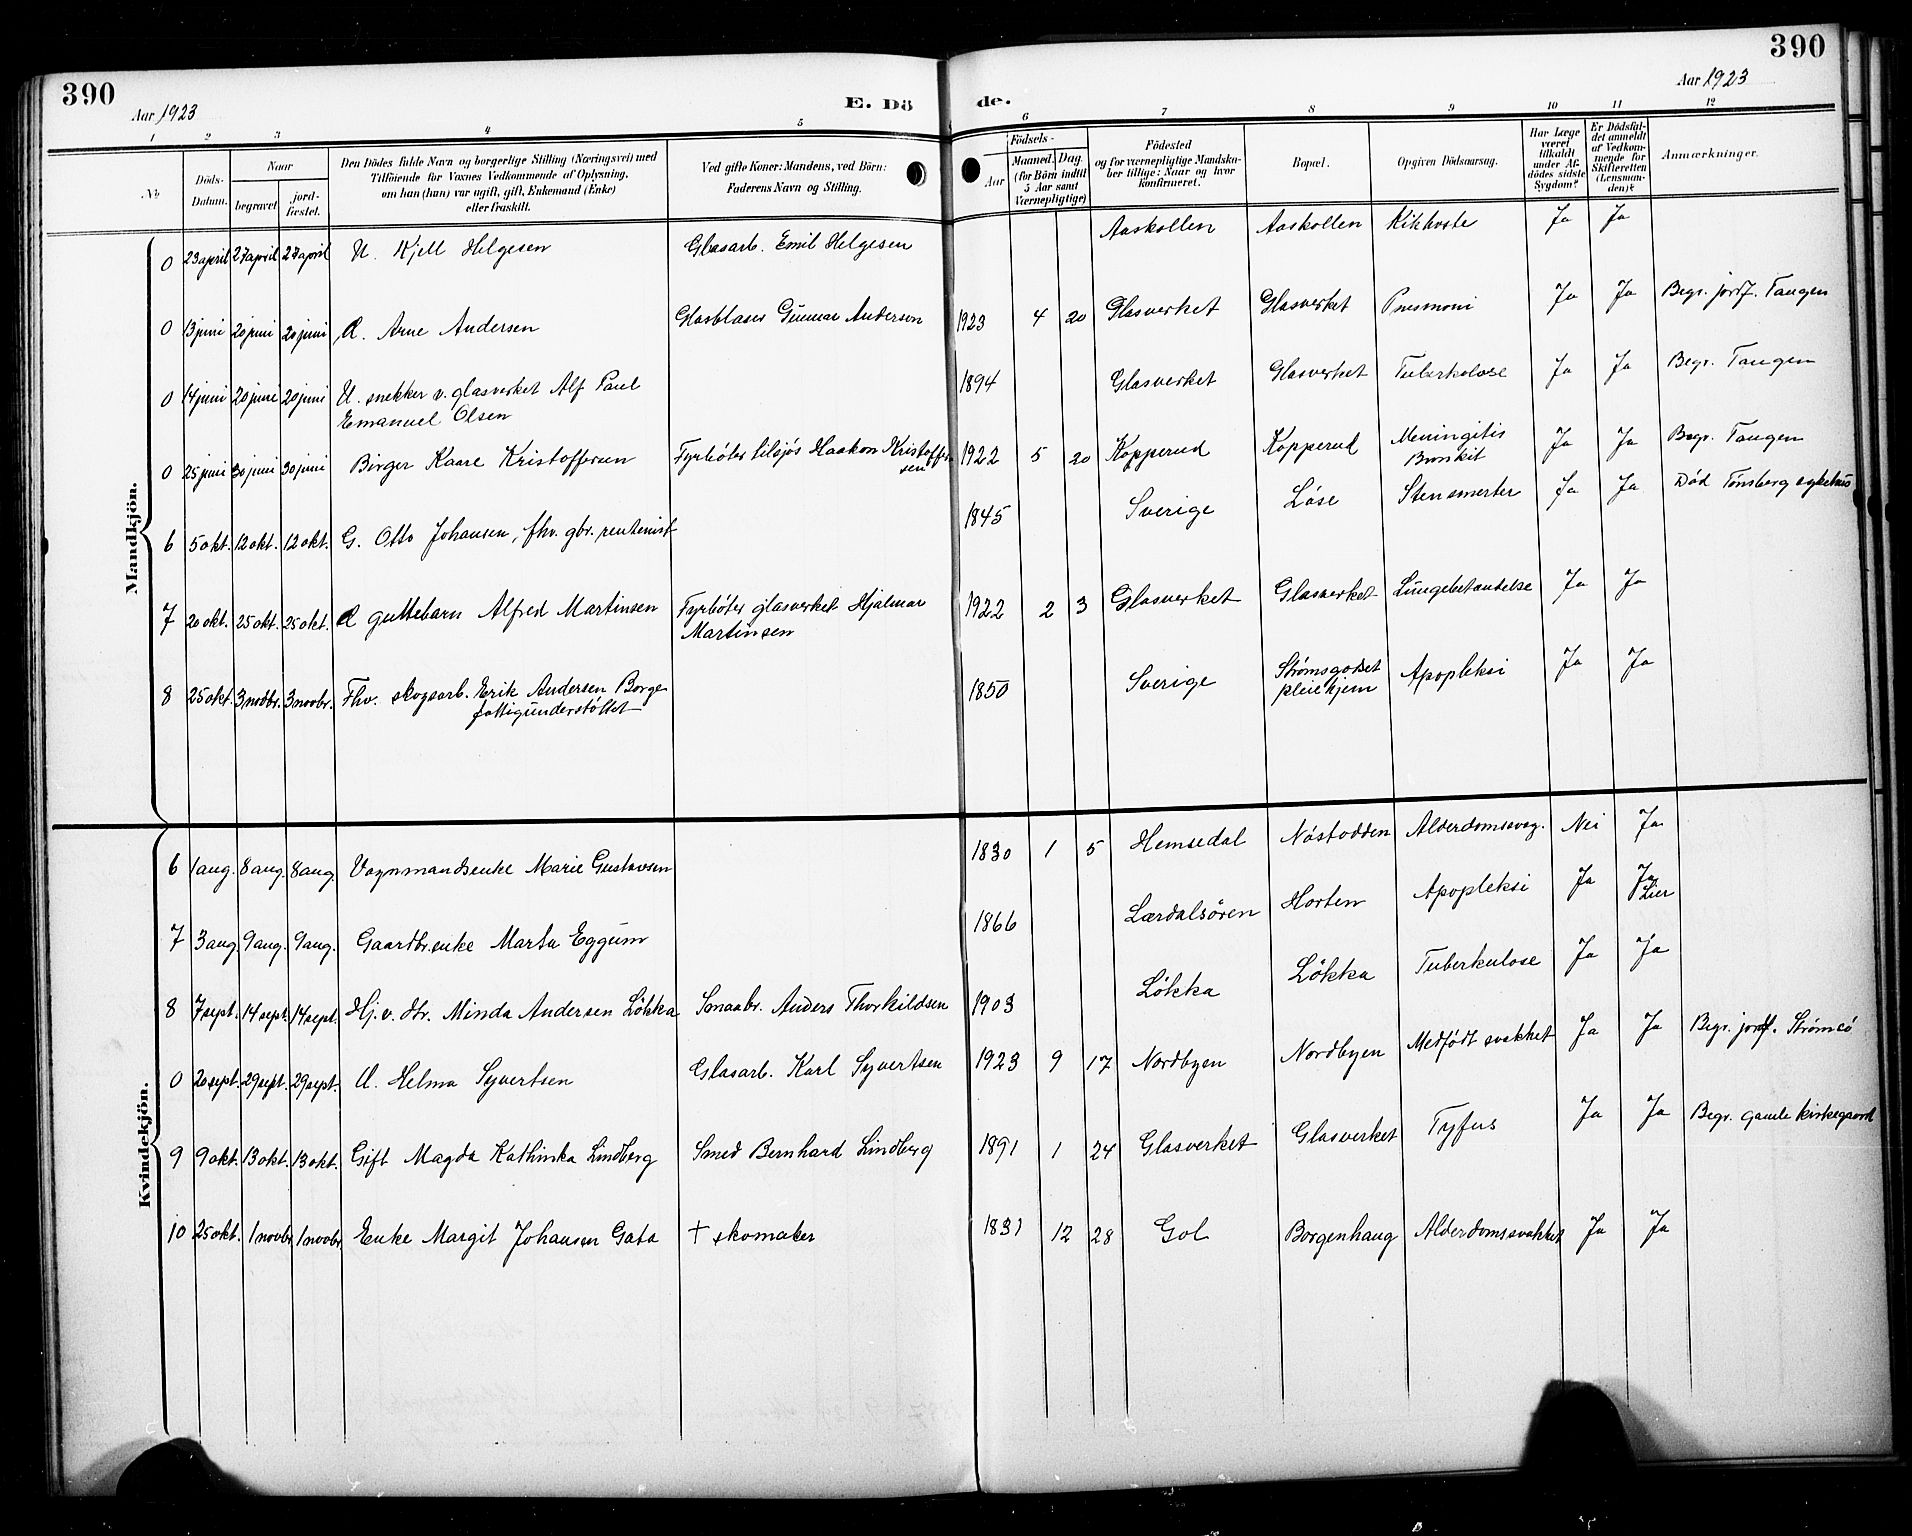 390
Aar 1923
E. Dö
de.
390
Aar 1923
1 2 3 4 5 6 7 8 9 10 11 12
No.
Döds-
Datum.
Naar
begravet
jord-
fæstet.
Den Dödes fulde Navn og borgerlige Stilling (Næringsvei) med
Tilföiende for Voxnes Vedkommende af Oplysning,
om han (hun) var ugift, gift, Enkemand (Enke)
eller fraskilt.
Ved gifte Koner: Mandens, ved Börn:
Faderens Navn og Stilling.
Födsels-
Aar
Maaned. Dag.
(for Börn indtil
5 Aar samt
Værnepligtige)
Födested
og for værnepligtige Mandska-
ber tillige: Naar og hvor
konfirmeret.
Bopæl.
Opgiven Dödsaarsag.
Har Læge
været
tilkaldt
under Af-
dödes sidste
Sygdom?
Er Dödsfal-
det anmeldt
af Vedkom-
mende for
Skifteretten
(Lensman-
den)?
Anmærkninger.
Mandkjön.
0 23 april 27 april 27 april U. Kjell Helgesen Glasarb. Emil Helgesen Aaskollen Aaskollen Kikhoste Ja Ja
0 13 juni 20 juni 20 juni U. Arne Andersen Glasblaser Gunnar Andersen 1923 4 20 Glasverket Glasverket Pnevmoni Ja Ja Begr. jordf. Tangen
0 14 juni 20 juni 20 juni U. snekker v. glasverket Alf Paul
Emanuel Olsen 1894 Glasverket Glasverket Tuberkulose Ja Ja Begr. Tangen
0 25 juni 30 juni 30 juni Birger Kaare Kristoffersen Fyrböter tilsjös Haakon Kristoffer
sen 1922 5 20 Kopperud Kopperud Meningitis
Bronkit Ja Ja Begr. Tangen
6 5 okt. 12 okt. 12 okt. G. Otto Johansen, fhv. gbr. rentenist 1845 Sverige Löse Stensmerter Ja Ja Död Tönsberg sykehus
7 20 okt. 25 okt. 25 okt. U guttebarn Alfred Martinsen Fyrböter glasverket Hjalmar
Martinsen 1922 2 3 Glasverket Glasverket Lungebetændelse Ja Ja
8 25 okt. 3 novbr. 3 novbr. Fhv. skogsarb. Erik Andersen Borge
fattigunderstöttet 1850 Sverige Strömsgodset
pleiehjem Apopleksi Ja Ja
Kvindekjön.
6 1 aug. 8 aug. 8 aug. Vognmandsenke Marie Gustavsen 1830 1 5 Hemsedal Nöstodden Alderdomssvag. Nei Ja
7 3 aug. 9 aug. 9 aug. Gaardbr.enke Marta Eggum 1866 Lærdalsören Horten Apopleksi Ja Ja
Lier
8 7 sept. 14 sept. 14 sept. Hj. v. dtr. Minda Andersen Lökka Smaabr. Anders Thorkildsen 1903 Lökka Lökka Tuberkulose Ja Ja
0 20 sept. 29 sept. 29 sept. U. Helma Syvertsen Glasarb. Karl Syvertsen 1923 9 17 Nordbyen Nordbyen Medfödt svakhet Ja Ja Begr. jordf. Strömsö
9 9 okt. 13 okt. 13 okt. Gift Magda Kathinka Lindberg Smed Bernhard Lindberg 1891 1 24 Glasverket Glasverket Tyfus Ja Ja Begr. gamle kirkegaard
10 25 okt. 1 novbr. 1 novbr. Enke Margit Johansen Gata † skomaker 1831 12 28 Gol Borgenhaug Alderdomssvakhet Ja Ja